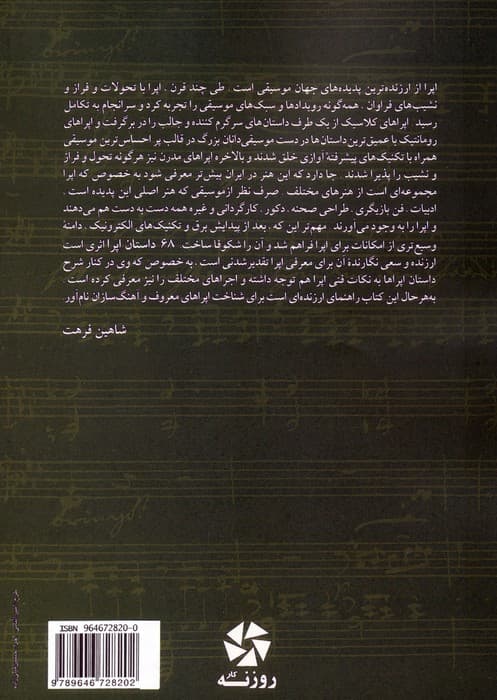 اپرا از ارزنده‌ترین پدیده‌های جهان موسیقی است. طی چند قرن، اپرا با تحولات و فراز و
نشیب‌های فراوان، همه‌گونه رویدادها و سبک‌های موسیقی را تجربه کرد و سرانجام به تکامل
رسید. اپراهای کلاسیک از یک طرف داستان‌های سرگرم کننده و جالب را در برگرفت و اپراهای
رومانتیک با عمیق‌ترین داستان‌ها در دست موسیقی‌دانان بزرگ در قالب پر احساس‌ترین موسیقی
همراه با تکنیک‌های پیشرفتهٔ آوازی خلق شدند و بالاخره اپراهای مدرن نیز هرگونه تحول و فراز
و نشیب را پذیرا شدند. جا دارد که این هنر در ایران بیش‌تر معرفی شود به خصوص که اپرا
مجموعه‌ای است از هنرهای مختلف. صرف نظر از موسیقی که هنر اصلی این پدیده است،
ادبیات، فن بازیگری، طراحی صحنه، دکور، کارگردانی و غیره همه دست به دست هم می‌دهند
و اپرا را به وجود می‌آورند. مهم‌تر این که، بعد از پیدایش برق و تکنیک‌های الکترونیک، دامنهٔ
وسیع‌تری از امکانات برای اپرا فراهم شد و آن را شکوفا ساخت. ۶۸ داستان اپرا اثری است
ارزنده و سعی نگارندهٔ آن برای معرفی اپرا تقدیرشدنی است. به خصوص که وی در کنار شرح
داستان اپراها به نکات فنی اپرا هم توجه داشته و اجراهای مختلف را نیز معرفی کرده است.
به‌هرحال این کتاب راهنمای ارزنده‌ای است برای شناخت اپراهای معروف و اهنگ‌سازان نام‌آور.
شاهین فرهت
ISBN 964672820-0
9789646728202
کار
روزنه